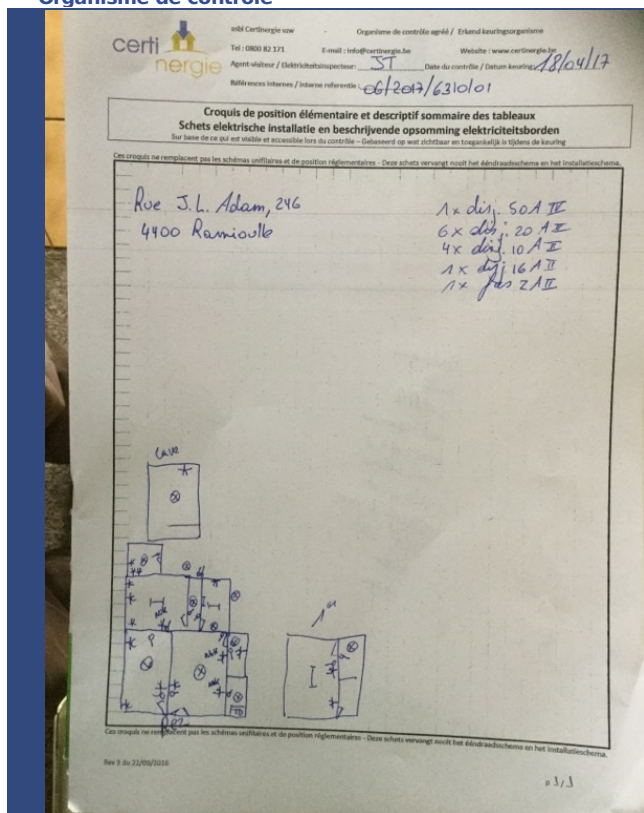 Organisme de contrôle
certinergie
asbl Certinergie vzw - Organisme de contrôle agréé / Erkend keuringsorganisme
Tel : 0800 82 171 E-mail : info@certinergie.be Website : www.certinergie.be
Agent-visiteur / Elektriciteitsinspecteur: JT Date du contrôle / Datum keuring: 18/04/17
Références internes / Interne referentie : 06/2017/6310/01
Croquis de position élémentaire et descriptif sommaire des tableaux
Schets elektrische installatie en beschrijvende opsomming elektriciteitsborden
Sur base de ce qui est visible et accessible lors du contrôle – Gebaseerd op wat zichtbaar en toegankelijk is tijdens de keuring
Ces croquis ne remplacent pas les schémas unifilaires et de position réglementaires - Deze schets vervangt nooit het ééndraadsschema en het installatieschema.
Rue J.L. Adam, 246
4400 Ramioulle
1x disj. 50A IV
6x disj. 20 A II
4x disj. 10 A II
1x disj 16 A II
1x fus 2A II
Cave
1er
Rez
Ces croquis ne remplacent pas les schémas unifilaires et de position réglementaires - Deze schets vervangt nooit het ééndraadsschema en het installatieschema.
Rev 3 du 22/08/2016
p 1/1